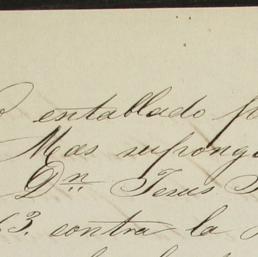 entablado
Mas supongo
Dn Jesus
63. contra la